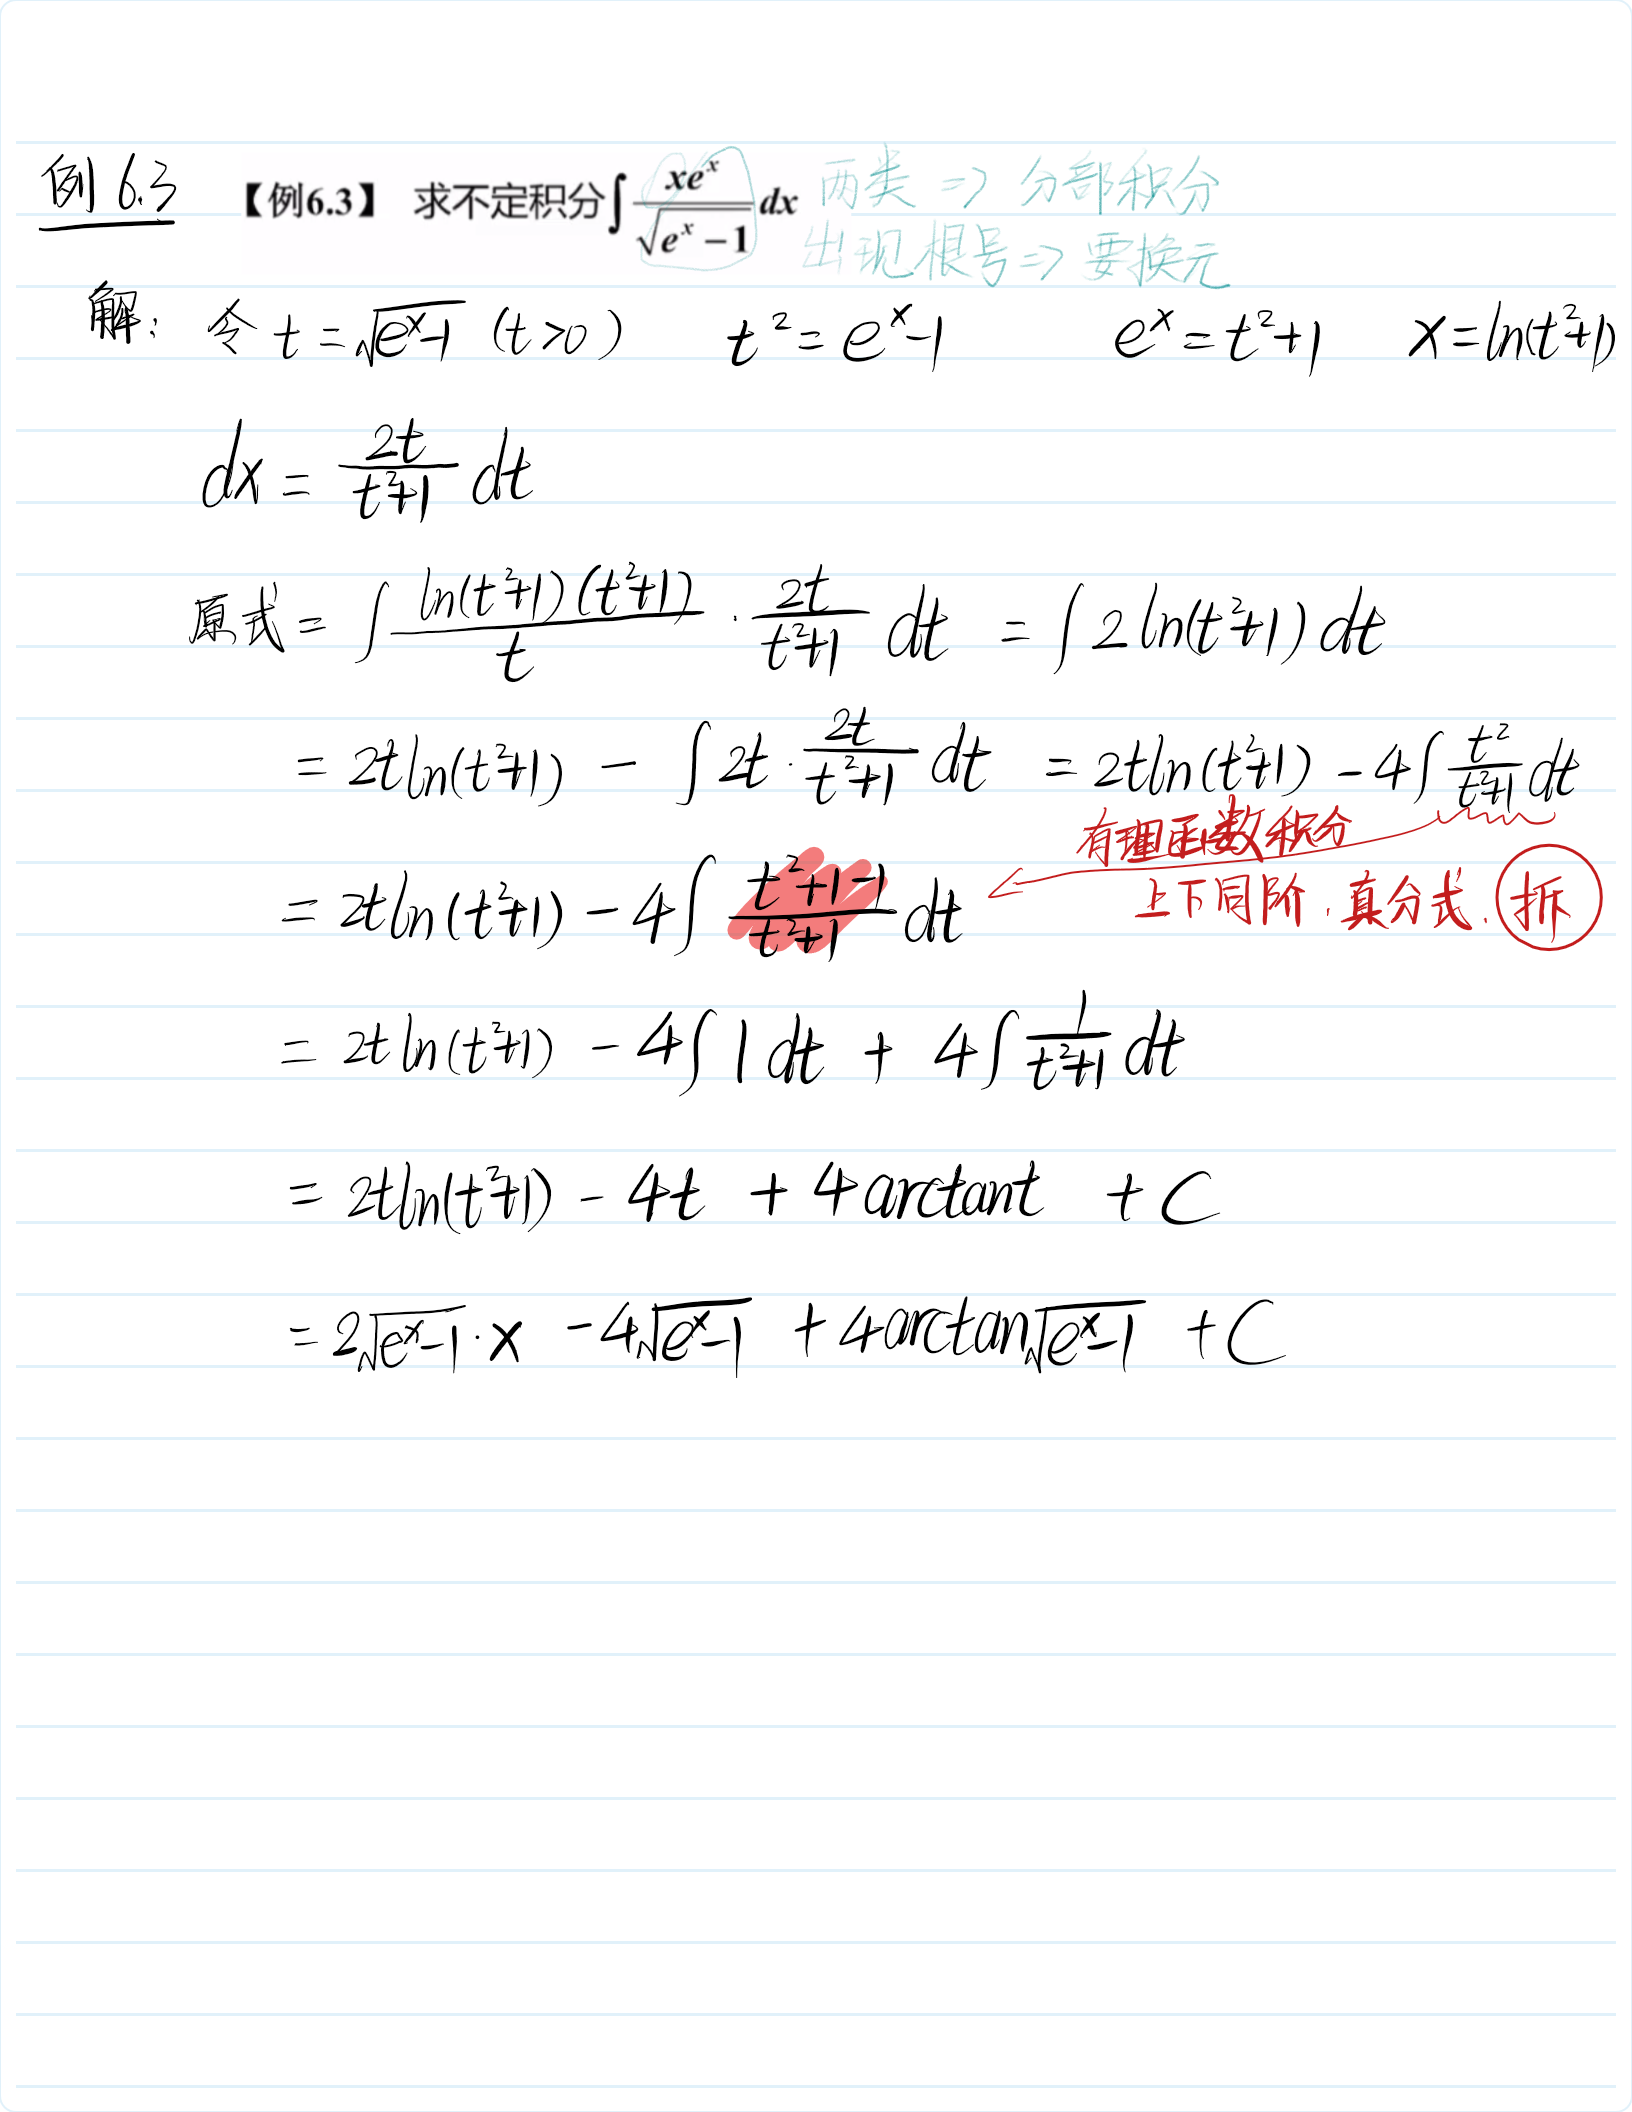 例 6.3 【例6.3】 求不定积分∫ xeˣ/√(eˣ−1) dx 两类 => 分部积分
出现根号=> 要换元
解: 令 t = √(eˣ-1) (t>0) t² = eˣ-1 eˣ = t²+1 x = ln(t²+1)
dx = 2t/(t²+1) dt
原式 = ∫ ln(t²+1)(t²+1)/t · 2t/(t²+1) dt = ∫ 2ln(t²+1) dt
= 2tln(t²+1) - ∫ 2t · 2t/(t²+1) dt = 2tln(t²+1) - 4∫ t²/(t²+1) dt
有理函数积分
= 2tln(t²+1) - 4∫ (t²+1-1)/(t²+1) dt 上下同阶, 真分式. 拆
= 2tln(t²+1) - 4∫ 1 dt + 4∫ 1/(t²+1) dt
= 2tln(t²+1) - 4t + 4arctant + C
= 2√(eˣ-1) · x - 4√(eˣ-1) + 4arctan√(eˣ-1) + C